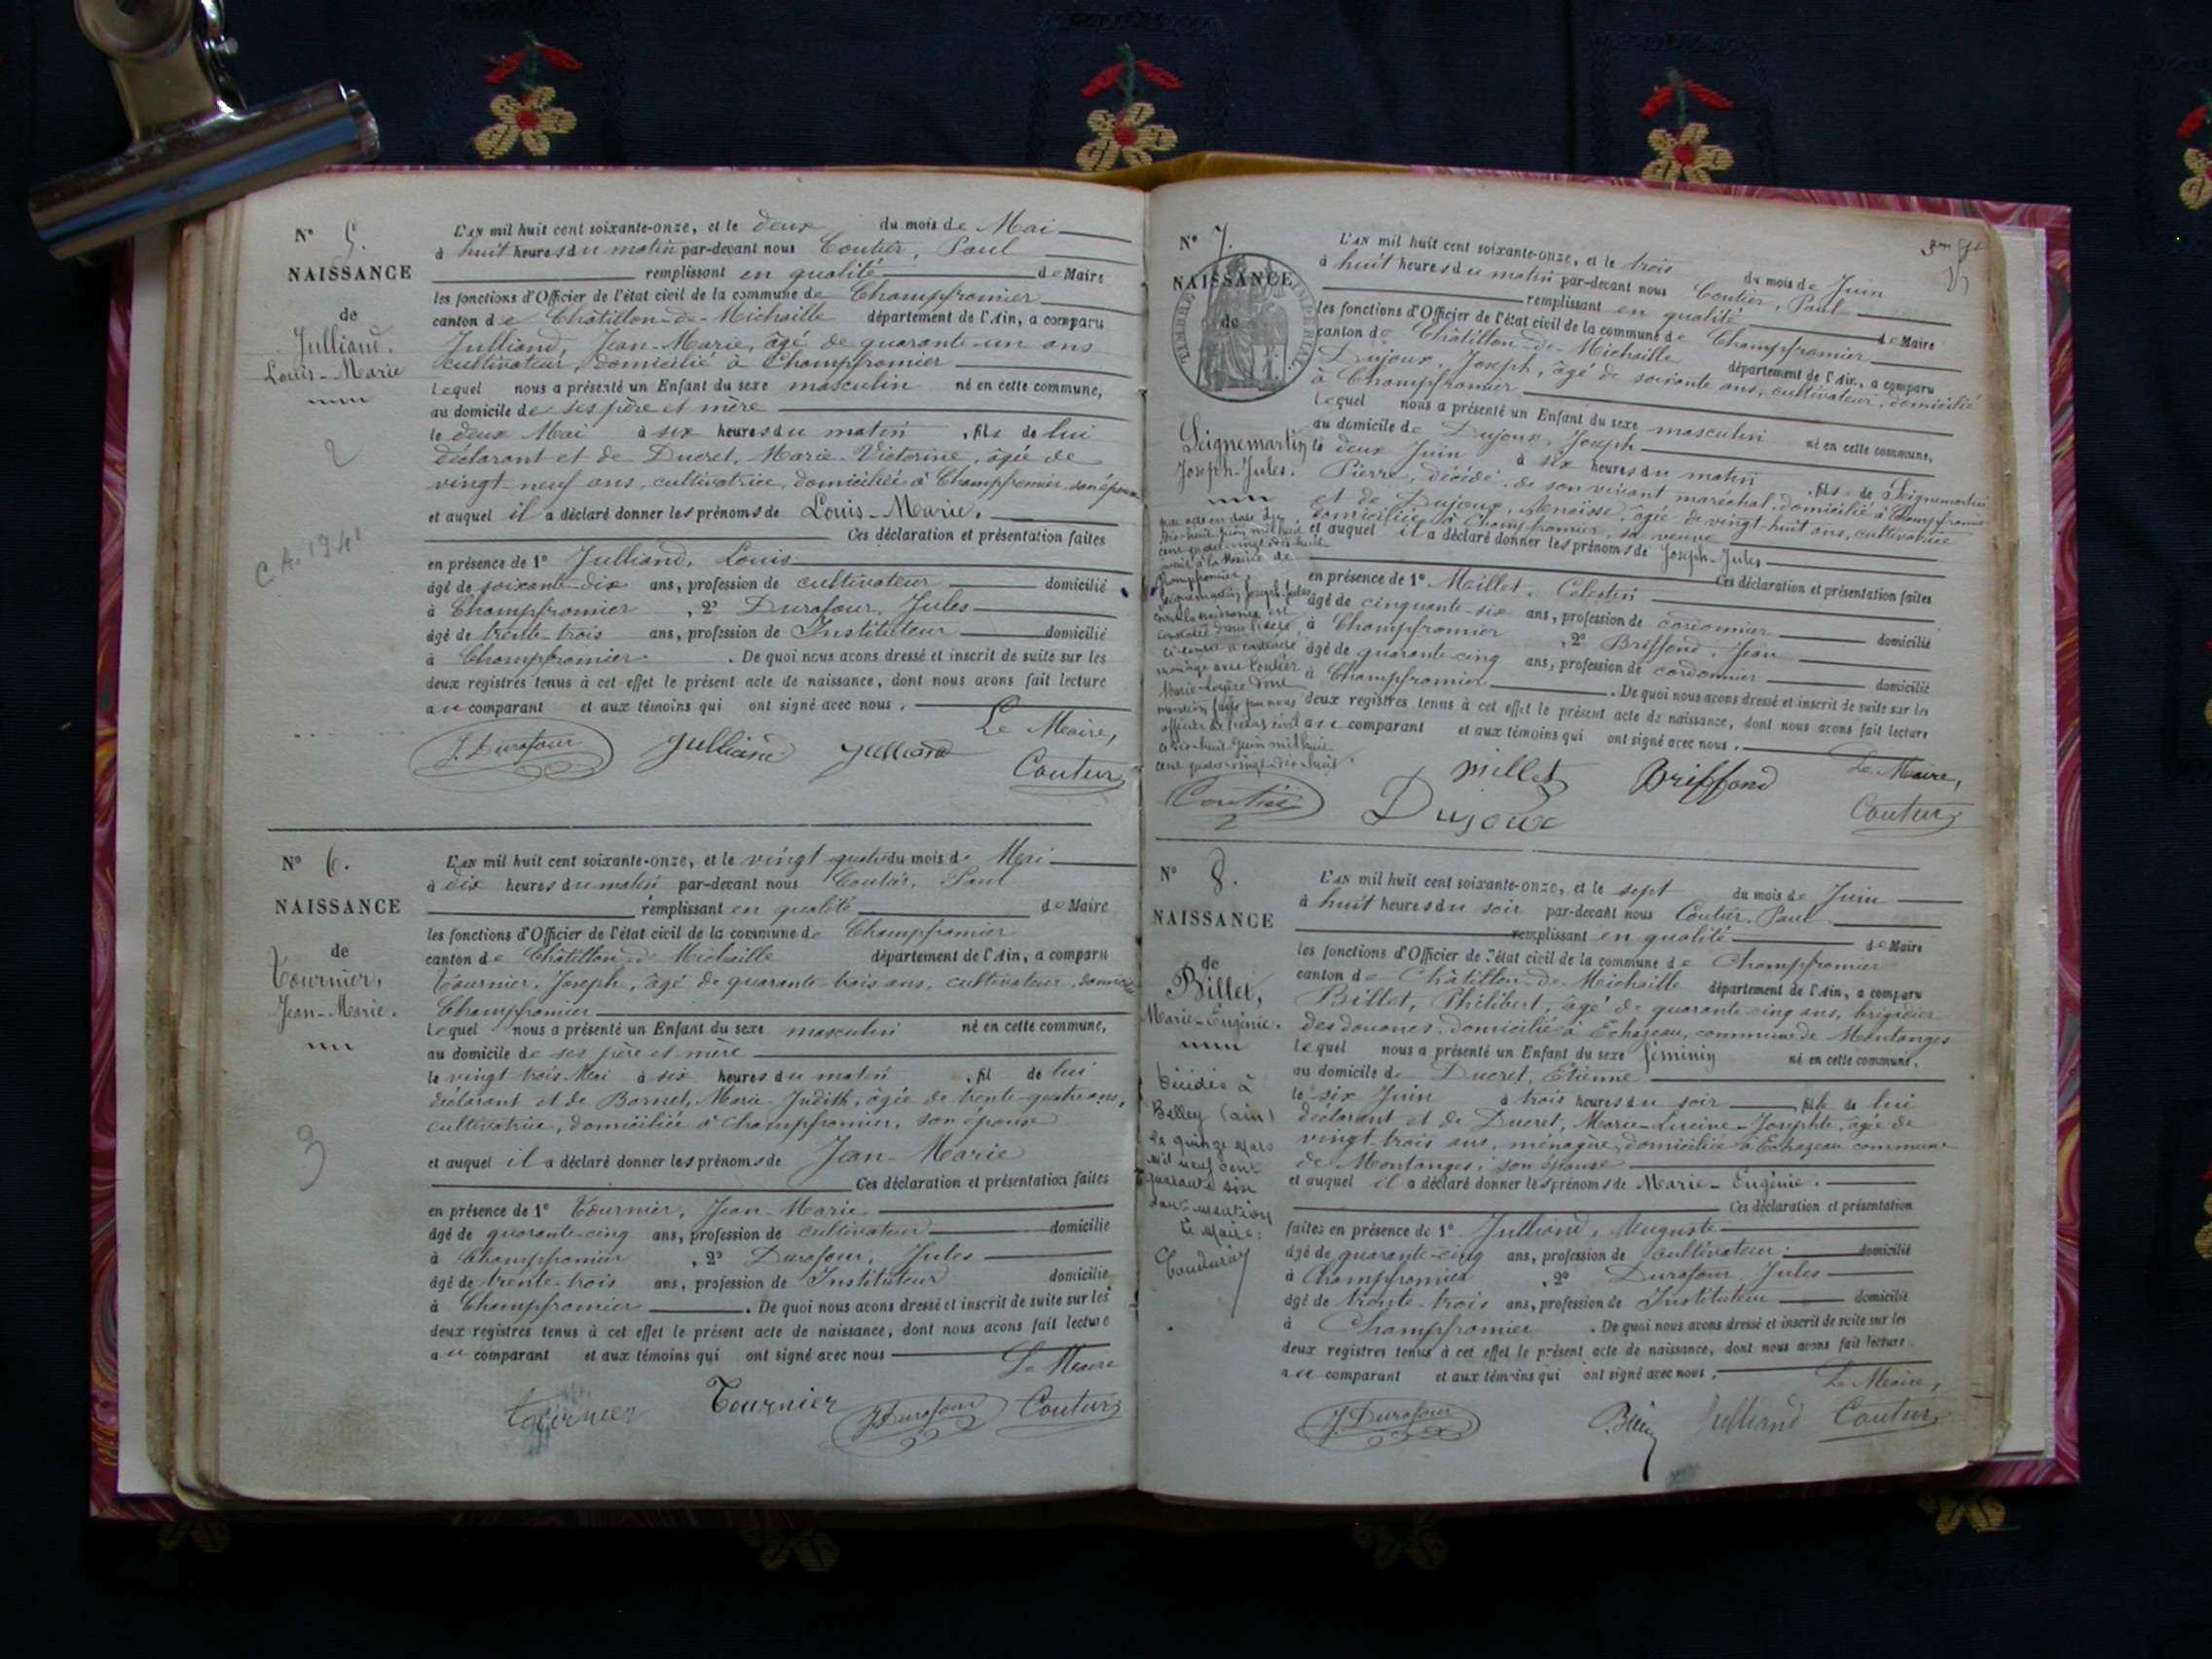 N° 5.
NAISSANCE
de
Julliand.
Louis-Marie
2
C.A. 1941
L'AN mil huit cent soixante-onze, et le deux du mois de Mai
à huit heures du matin par-devant nous Coutier, Paul
remplissant en qualité de Maire
les fonctions d'Officier de l'état civil de la commune de Champfromier
canton de Châtillon-de-Michaille département de l'Ain, a comparu
Julliand, Jean-Marie, âgé de quarante-un ans
cultivateur, domicilié à Champfromier
lequel nous a présenté un Enfant du sexe masculin né en cette commune,
au domicile de ses père et mère
le deux Mai à six heures du matin, fils de lui
déclarant et de Ducret, Marie-Victorine, âgée de
vingt-neuf ans, cultivatrice, domiciliée à Champfromier son épouse
et auquel il a déclaré donner les prénoms de Louis-Marie.
Ces déclaration et présentation faites
en présence de 1° Julliand, Louis
âgé de soixante-dix ans, profession de cultivateur domicilié
à Champfromier, 2° Durafour, Jules
âgé de trente-trois ans, profession de Instituteur domicilié
à Champfromier. De quoi nous avons dressé et inscrit de suite sur les
deux registres tenus à cet effet le présent acte de naissance, dont nous avons fait lecture
au comparant et aux témoins qui ont signé avec nous.
Le Maire,
J. Durafour Julliand Julliand Coutier
N° 6.
NAISSANCE
de
Tournier,
Jean-Marie.
3
L'AN mil huit cent soixante-onze, et le vingt-quatre du mois de Mai
à dix heures du matin par-devant nous Coutier, Paul
remplissant en qualité de Maire
les fonctions d'Officier de l'état civil de la commune de Champfromier
canton de Châtillon-de-Michaille département de l'Ain, a comparu
Tournier, Joseph, âgé de quarante-trois ans, cultivateur, domicilié
Champfromier
lequel nous a présenté un Enfant du sexe masculin né en cette commune,
au domicile de ses père et mère
le vingt-trois Mai à six heures du matin, fil de lui
déclarant et de Bornet, Marie-Judith, âgée de trente-quatre ans,
cultivatrice, domiciliée à Champfromier, son épouse
et auquel il a déclaré donner les prénoms de Jean-Marie
Ces déclaration et présentation faites
en présence de 1° Tournier, Jean-Marie
âgé de quarante-cinq ans, profession de cultivateur domicilié
à Champfromier, 2° Durafour, Jules
âgé de trente-trois ans, profession de Instituteur domicilié
à Champfromier. De quoi nous avons dressé et inscrit de suite sur les
deux registres tenus à cet effet le présent acte de naissance, dont nous avons fait lecture
au comparant et aux témoins qui ont signé avec nous
Le Maire
Tournier Tournier J. Durafour Coutier
N° 7.
NAISSANCE
de
TIMBRE IMPERIAL
Seignemartin
Joseph-Jules.
par acte en date du
dix-huit Juin mil huit
cent quatre-vingt-dix-huit
à la Mairie de
Champfromier,
Seignemartin Joseph-Jules
dont la naissance est
constatée dans l'acte
ci-contre a contracté
mariage avec Coutier
Marie-Louise dont
mention faite par nous
officier de l'état civil
le dix-huit Juin mil huit
cent quatre-vingt-dix-huit.
Coutier
L'AN mil huit cent soixante-onze, et le trois du mois de Juin
à huit heures du matin par-devant nous Coutier, Paul
remplissant en qualité de Maire
les fonctions d'Officier de l'état civil de la commune de Champfromier
canton de Châtillon-de-Michaille département de l'Ain, a comparu
Dujoux, Joseph, âgé de soixante ans, cultivateur, domicilié
à Champfromier
lequel nous a présenté un Enfant du sexe masculin né en cette commune,
au domicile de Dujoux, Joseph
le deux Juin à six heures du matin, fils de Seignemartin
Pierre, décédé, de son vivant maréchal, domicilié à Champfromier
et de Dujoux, âgée de vingt-huit ans, cultivatrice
domiciliée à Champfromier, sa veuve
et auquel il a déclaré donner les prénoms de Joseph-Jules
Ces déclaration et présentation faites
en présence de 1° Millet, Célestin
âgé de cinquante-six ans, profession de cordonnier domicilié
à Champfromier, 2° Briffond, Jean
âgé de quarante-cinq ans, profession de cordonnier domicilié
à Champfromier. De quoi nous avons dressé et inscrit de suite sur les
deux registres tenus à cet effet le présent acte de naissance, dont nous avons fait lecture
au comparant et aux témoins qui ont signé avec nous.
Le Maire,
Millet Briffond
Dujoux Coutier
N° 8.
NAISSANCE
de
Billet,
Marie-Eugénie.
Décédée à
Belley (Ain)
le quinze Mars
mil neuf cent
quarante six
dont mention
Le Maire:
L'AN mil huit cent soixante-onze, et le sept du mois de Juin
à huit heures du soir par-devant nous Coutier, Paul
remplissant en qualité de Maire
les fonctions d'Officier de l'état civil de la commune de Champfromier
canton de Châtillon-de-Michaille département de l'Ain, a comparu
Billet, Philibert, âgé de quarante-cinq ans, brigadier
des douanes, domicilié à Echazeau, commune de Montanges
lequel nous a présenté un Enfant du sexe féminin né en cette commune,
au domicile de Ducret, Etienne
le six Juin à trois heures du soir, fille de lui
déclarant et de Ducret, Marie-Lucine-Josephte, âgée de
vingt-trois ans, ménagère, domiciliée à Echazeau commune
de Montanges, son épouse
et auquel il a déclaré donner les prénoms de Marie-Eugénie.
Ces déclaration et présentation
faites en présence de 1° Julliand, Auguste
âgé de quarante-cinq ans, profession de cultivateur domicilié
à Champfromier, 2° Durafour, Jules
âgé de trente-trois ans, profession de Instituteur domicilié
à Champfromier. De quoi nous avons dressé et inscrit de suite sur les
deux registres tenus à cet effet le présent acte de naissance, dont nous avons fait lecture
au comparant et aux témoins qui ont signé avec nous.
Le Maire,
J. Durafour Julliand Coutier